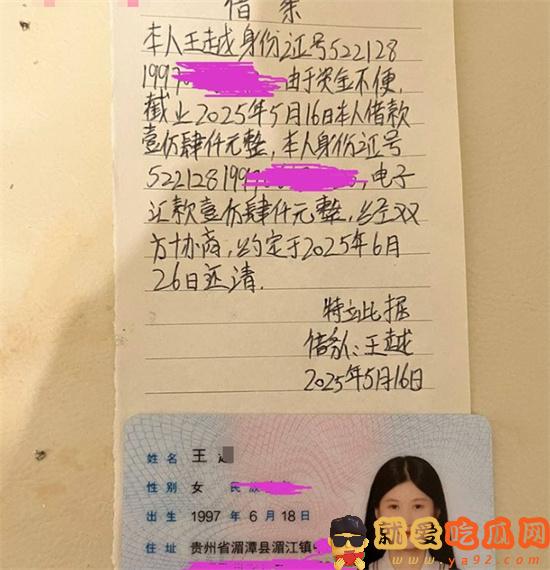 借条
本人王越身份证号522128
199 由于资金不便,
截止2025年5月16日本人借款
壹仿肆仟元整,本人身份证号
522128199 ,电子
汇款壹仿肆仟元整,经双
方协商,约定于2025年6月
26日还清.
特立此据
借条人:王越
2025年5月16日
姓名 王
性别 女 民族
出生 1997 年 6 月 18 日
住址 贵州省湄潭县湄江镇
就爱吃瓜网
www.ya92.com